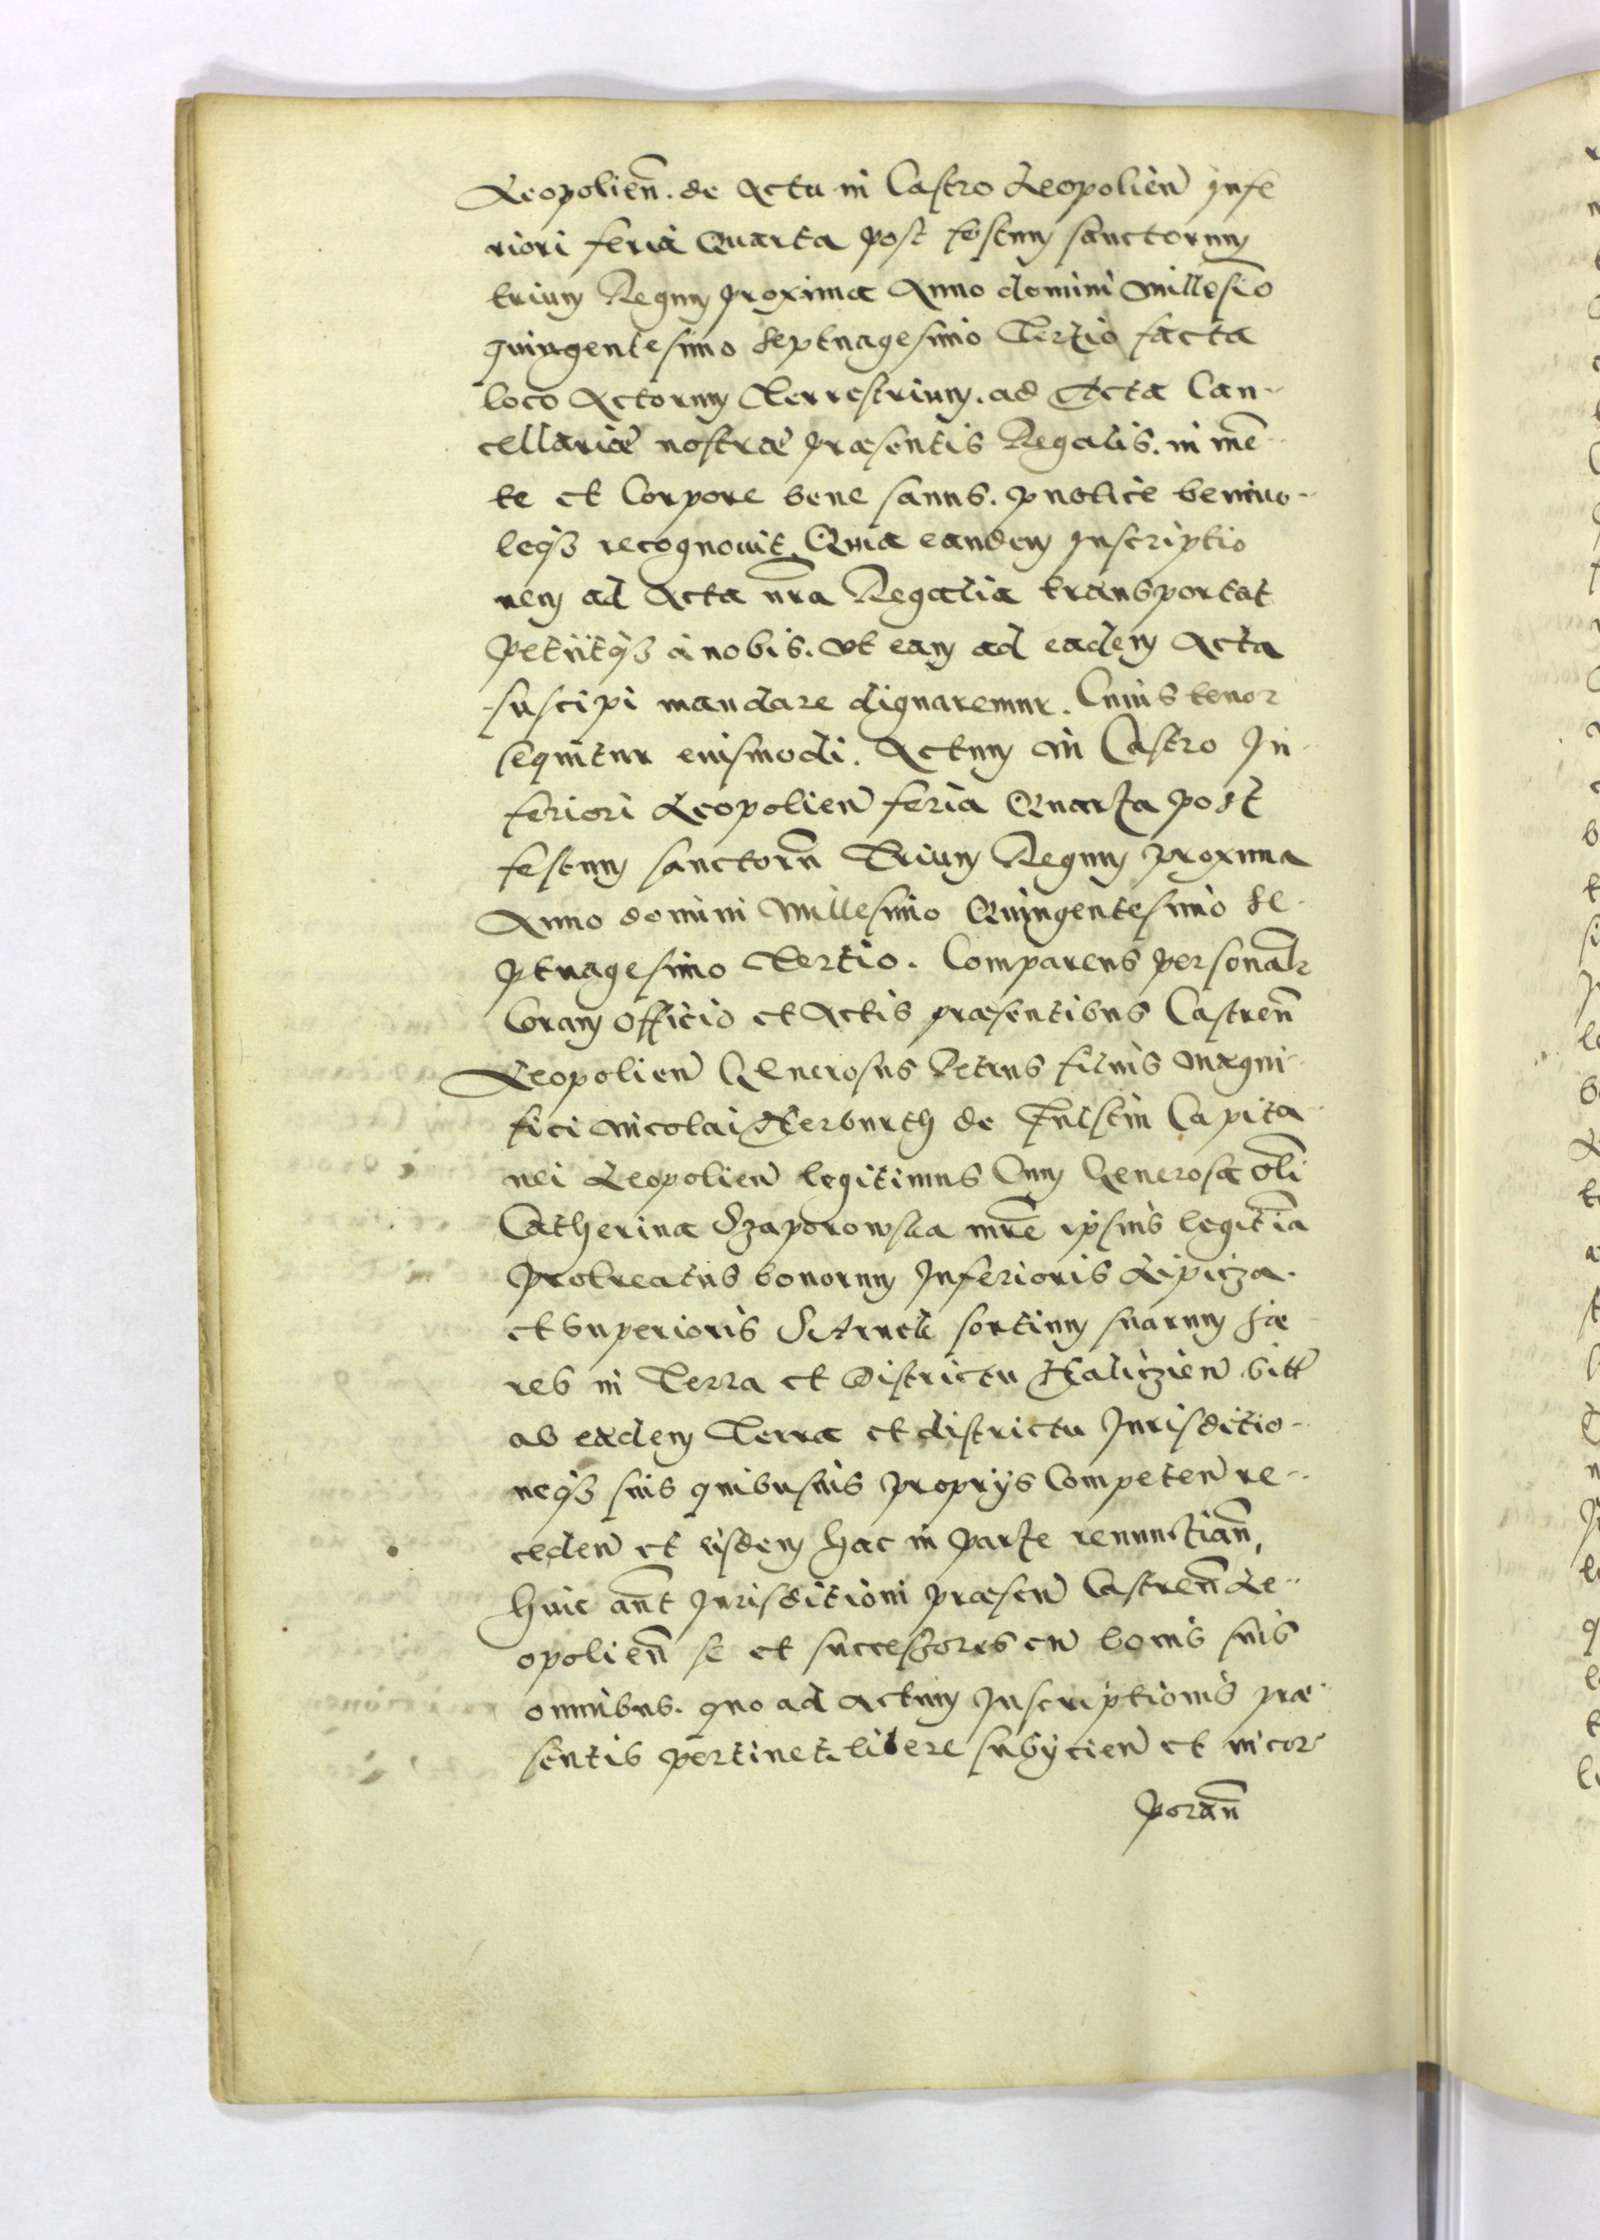 Leopolien̄. de Actu in Castro Leopolien̄ Infe
riori feria Quarta post festum sanctorum
trium Regum proxima Anno domini Millesīo
quingentesimo septuagesimo Tertio facta
loco Actorum Terrestrium. ad Acta Can-
cellariæ nostræ præsentis Regalis. in mē
te et Corpore bene sanus. publice benivo-
leqȝ recognouit. Quia eandem Inscriptio
nem ad Acta nr̄a Regalia transportat
petiitqȝ à nobis. vt eam ad eadem Acta
suscipi mandare dignaremur. Cuius tenor
sequitur eiusmodi. Actum in Castro In
feriori Leopolien̄ feria Quarta post
festum sanctorū Trium Regum proxima
Anno domini Millesimo Quingentesimo se-
ptuagesimo Tertio. Comparens personalr
Coram Officio et Actis præsentibus Castren̄
Leopolien̄ Generosus Petrus filius Magni
fici Nicolai Herburth de Fulstin Capita
nei Leopolien̄ legitimus Cum Generosa olī
Catherina Czaporowska mr̄e ipsius legitīa
procreatus bonorum Inferioris Lipicza.
et Superioris sortium suarum hæ
res in Terra et Districtu Haliczien̄
ab eadem Terra et districtu Iurisditio-
neqȝ suis quibusuis proprijs Competen̄ re-
ceden̄ et iisdem hac in parte renuntian̄,
huic aūt Iurisditioni præsen̄ Castren̄ Le-
opolien̄ se et successores cū bonis suis
omnibus. quo ad Actum Inscriptionis præ
sentis pertinet. libere subijcien̄ et incor
poran̄